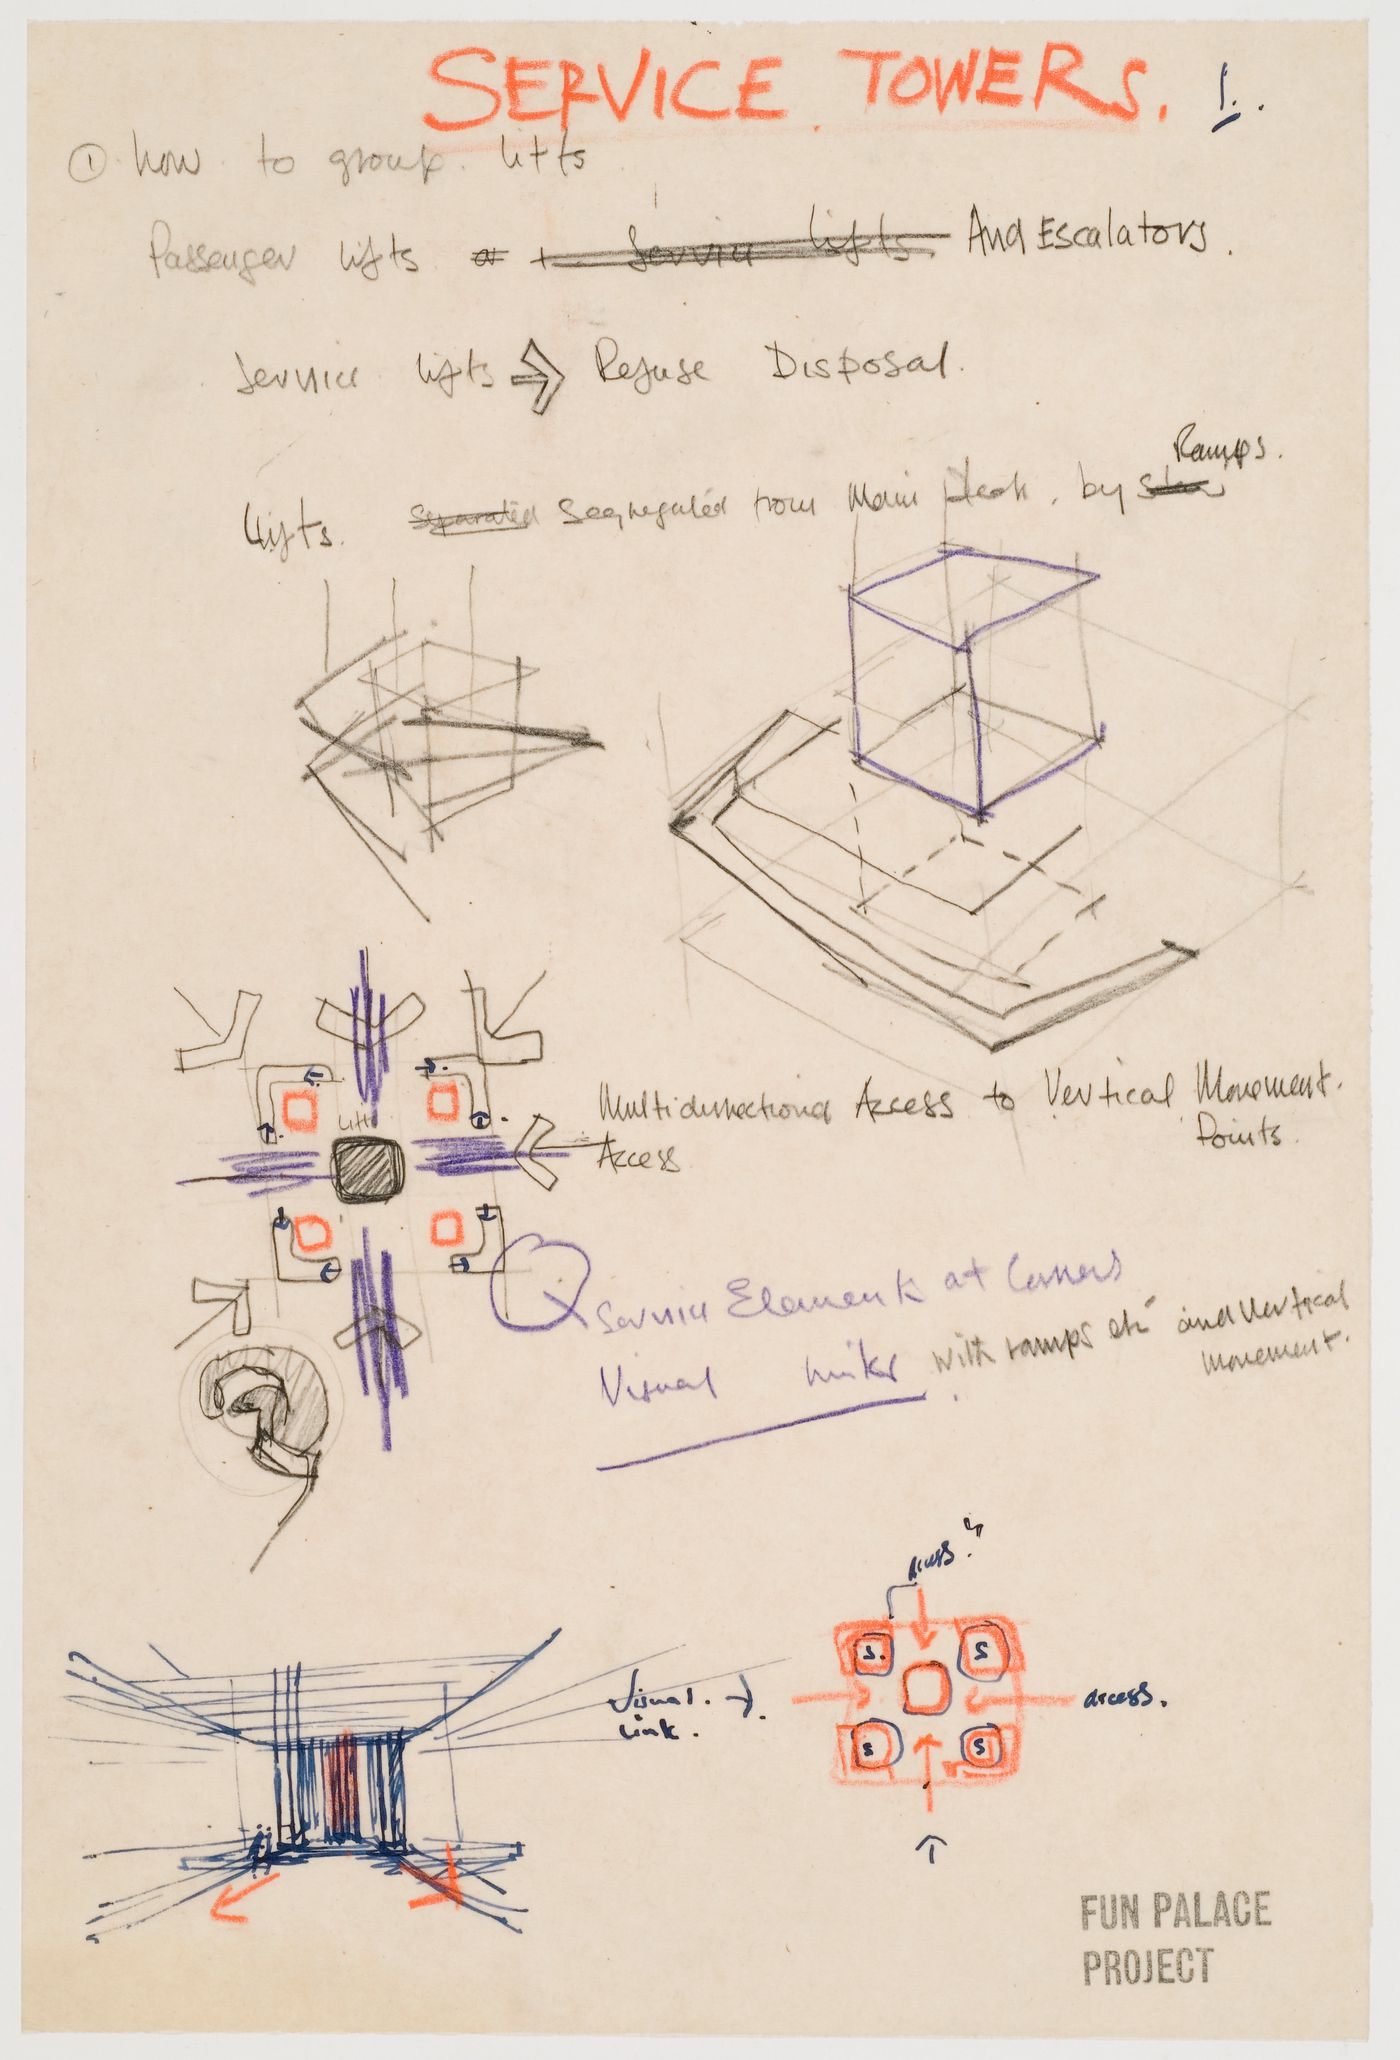 SERVICE TOWERS. 1.
① how to group lifts
Passenger lifts or + Service lifts And Escalators.
Service lifts ⇒ Refuse Disposal.
Ramps.
Lifts. separated Segregated from Main deck. by
Lift
Multidirectional Access to Vertical Movement.
Points.
Access
Service Elements at Corners
Visual links with ramps etc and Vertical
Movement.
access.
S. S
Visual. →.
Link.
access.
S S
FUN PALACE
PROJECT